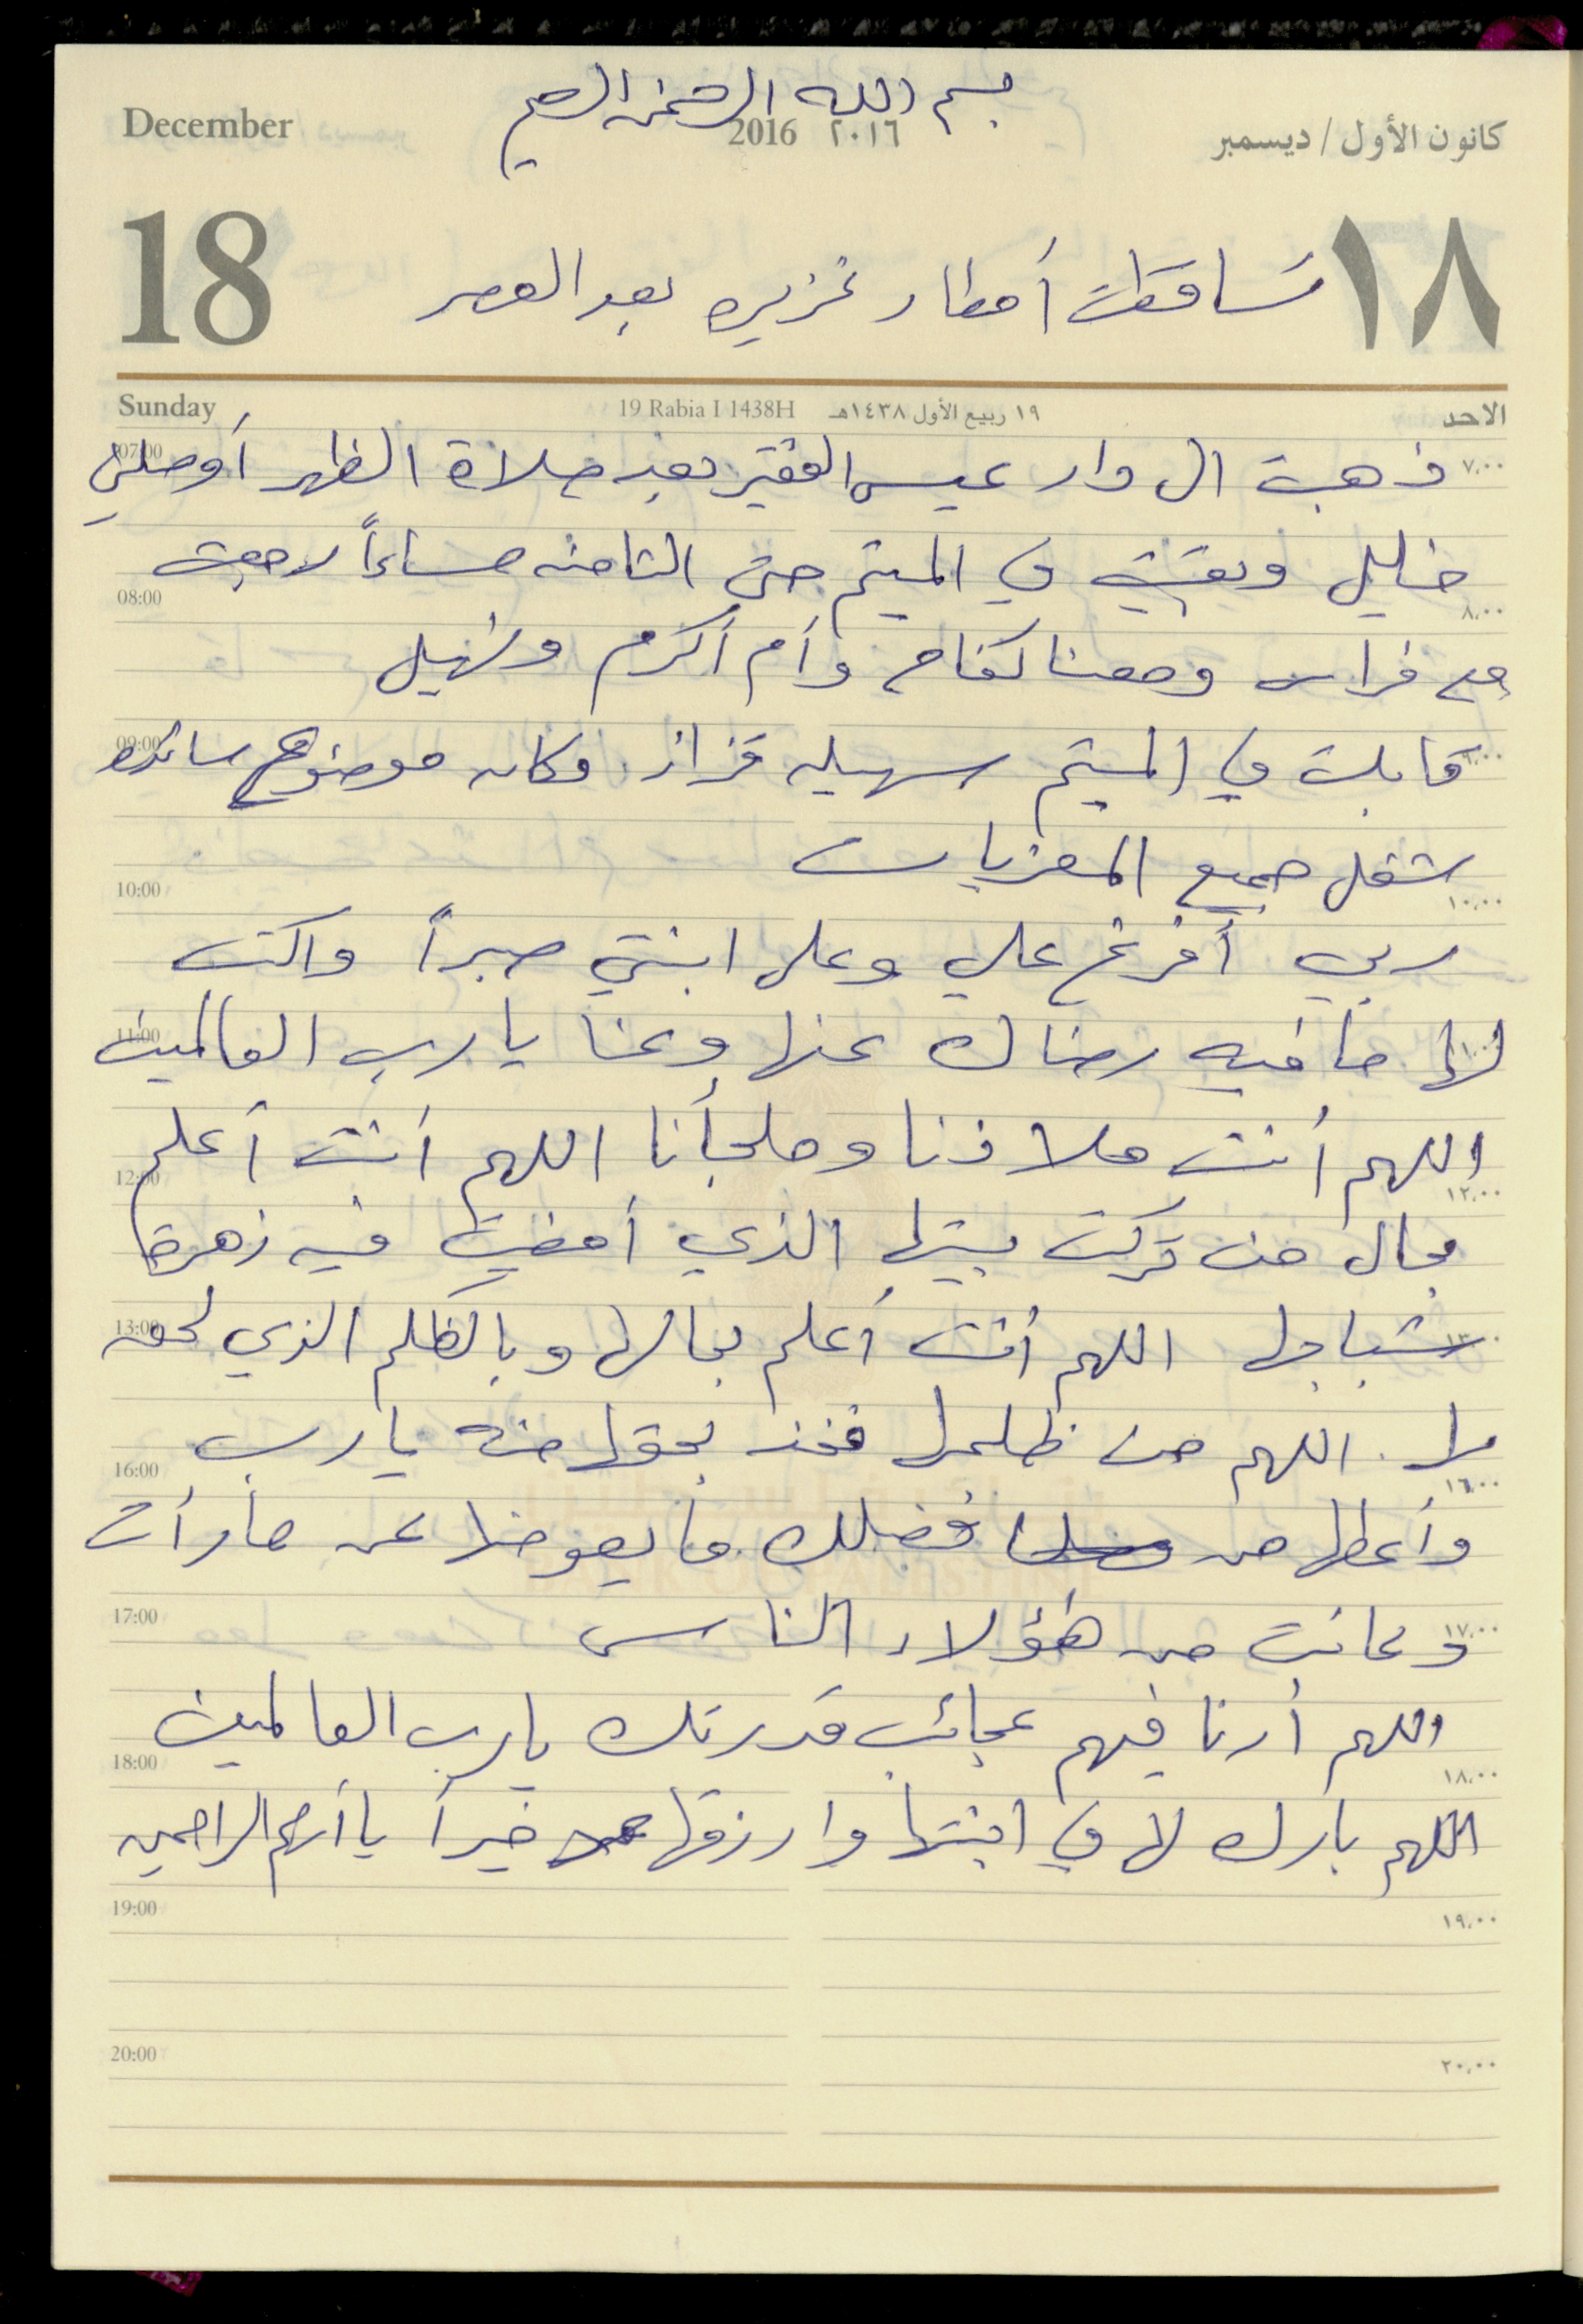 بسم الله الرحمن الرحيم
December 2016 ٢٠١٦ كانون الأول / ديسمبر
18 ١٨
تساقطت أمطار غزيره بعد العصر
Sunday 19 Rabia I 1438H ١٩ ربيع الأول ١٤٣٨هـ الاحد
07:00 ٧،٠٠
ذهبت الى دار عيسى الفقير بعد صلاة الظهر أوصلني
خليل وبقيت في الميتم حتى الثامنه مساءاً رجعت
08:00 ٨،٠٠
مع فراس ومعنا كفاح وأم أكرم ونهيل
09:00 ٩،٠٠
قابلت في الميتم سهيله قزاز. وكان موضوع
شغل جميع المعزيات
10:00 ١٠،٠٠
ربي أفرغ علي وعلى ابنتي صبراً واكتب
11:00 ١١،٠٠
لها ما فيه رضاك عنها وعنا يا رب العالمين
اللهم أنت ملاذنا وملجأنا اللهم أنت أعلم
12:00 ١٢،٠٠
بحال من تركت بيتها الذي أمضيت فيه زهرة
13:00 ١٣،٠٠
شبابها اللهم أنت أعلم بحالها وبالظلم الذي لحق
بها. اللهم من ظلمها فخذ بحقها منه يا رب
16:00 ١٦،٠٠
وأعطها من فضلك ما يعوضها عن ما رأت
17:00 ١٧،٠٠
وعانت من هؤلاء الناس
اللهم أرنا فيهم عجائب قدرتك يا رب العالمين
18:00 ١٨،٠٠
اللهم بارك لها في ابنتها وارزقها خيراً يا أرحم الراحمين
19:00 ١٩،٠٠
20:00 ٢٠،٠٠